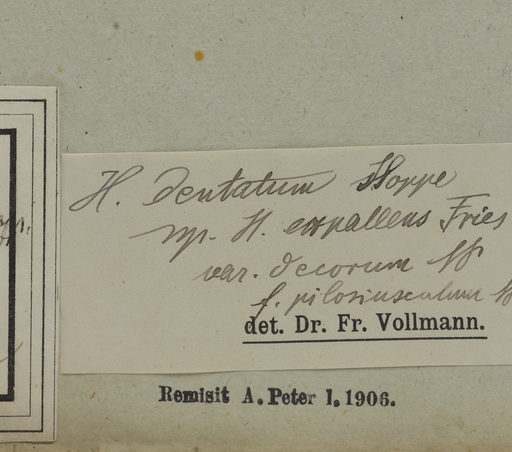 H. dentatum Hoppe
ssp. H. expallens Fries
var. decorum NP
f. pilosiusculum
det. Dr. Fr. Vollmann.
Remisit A. Peter 1. 1906.